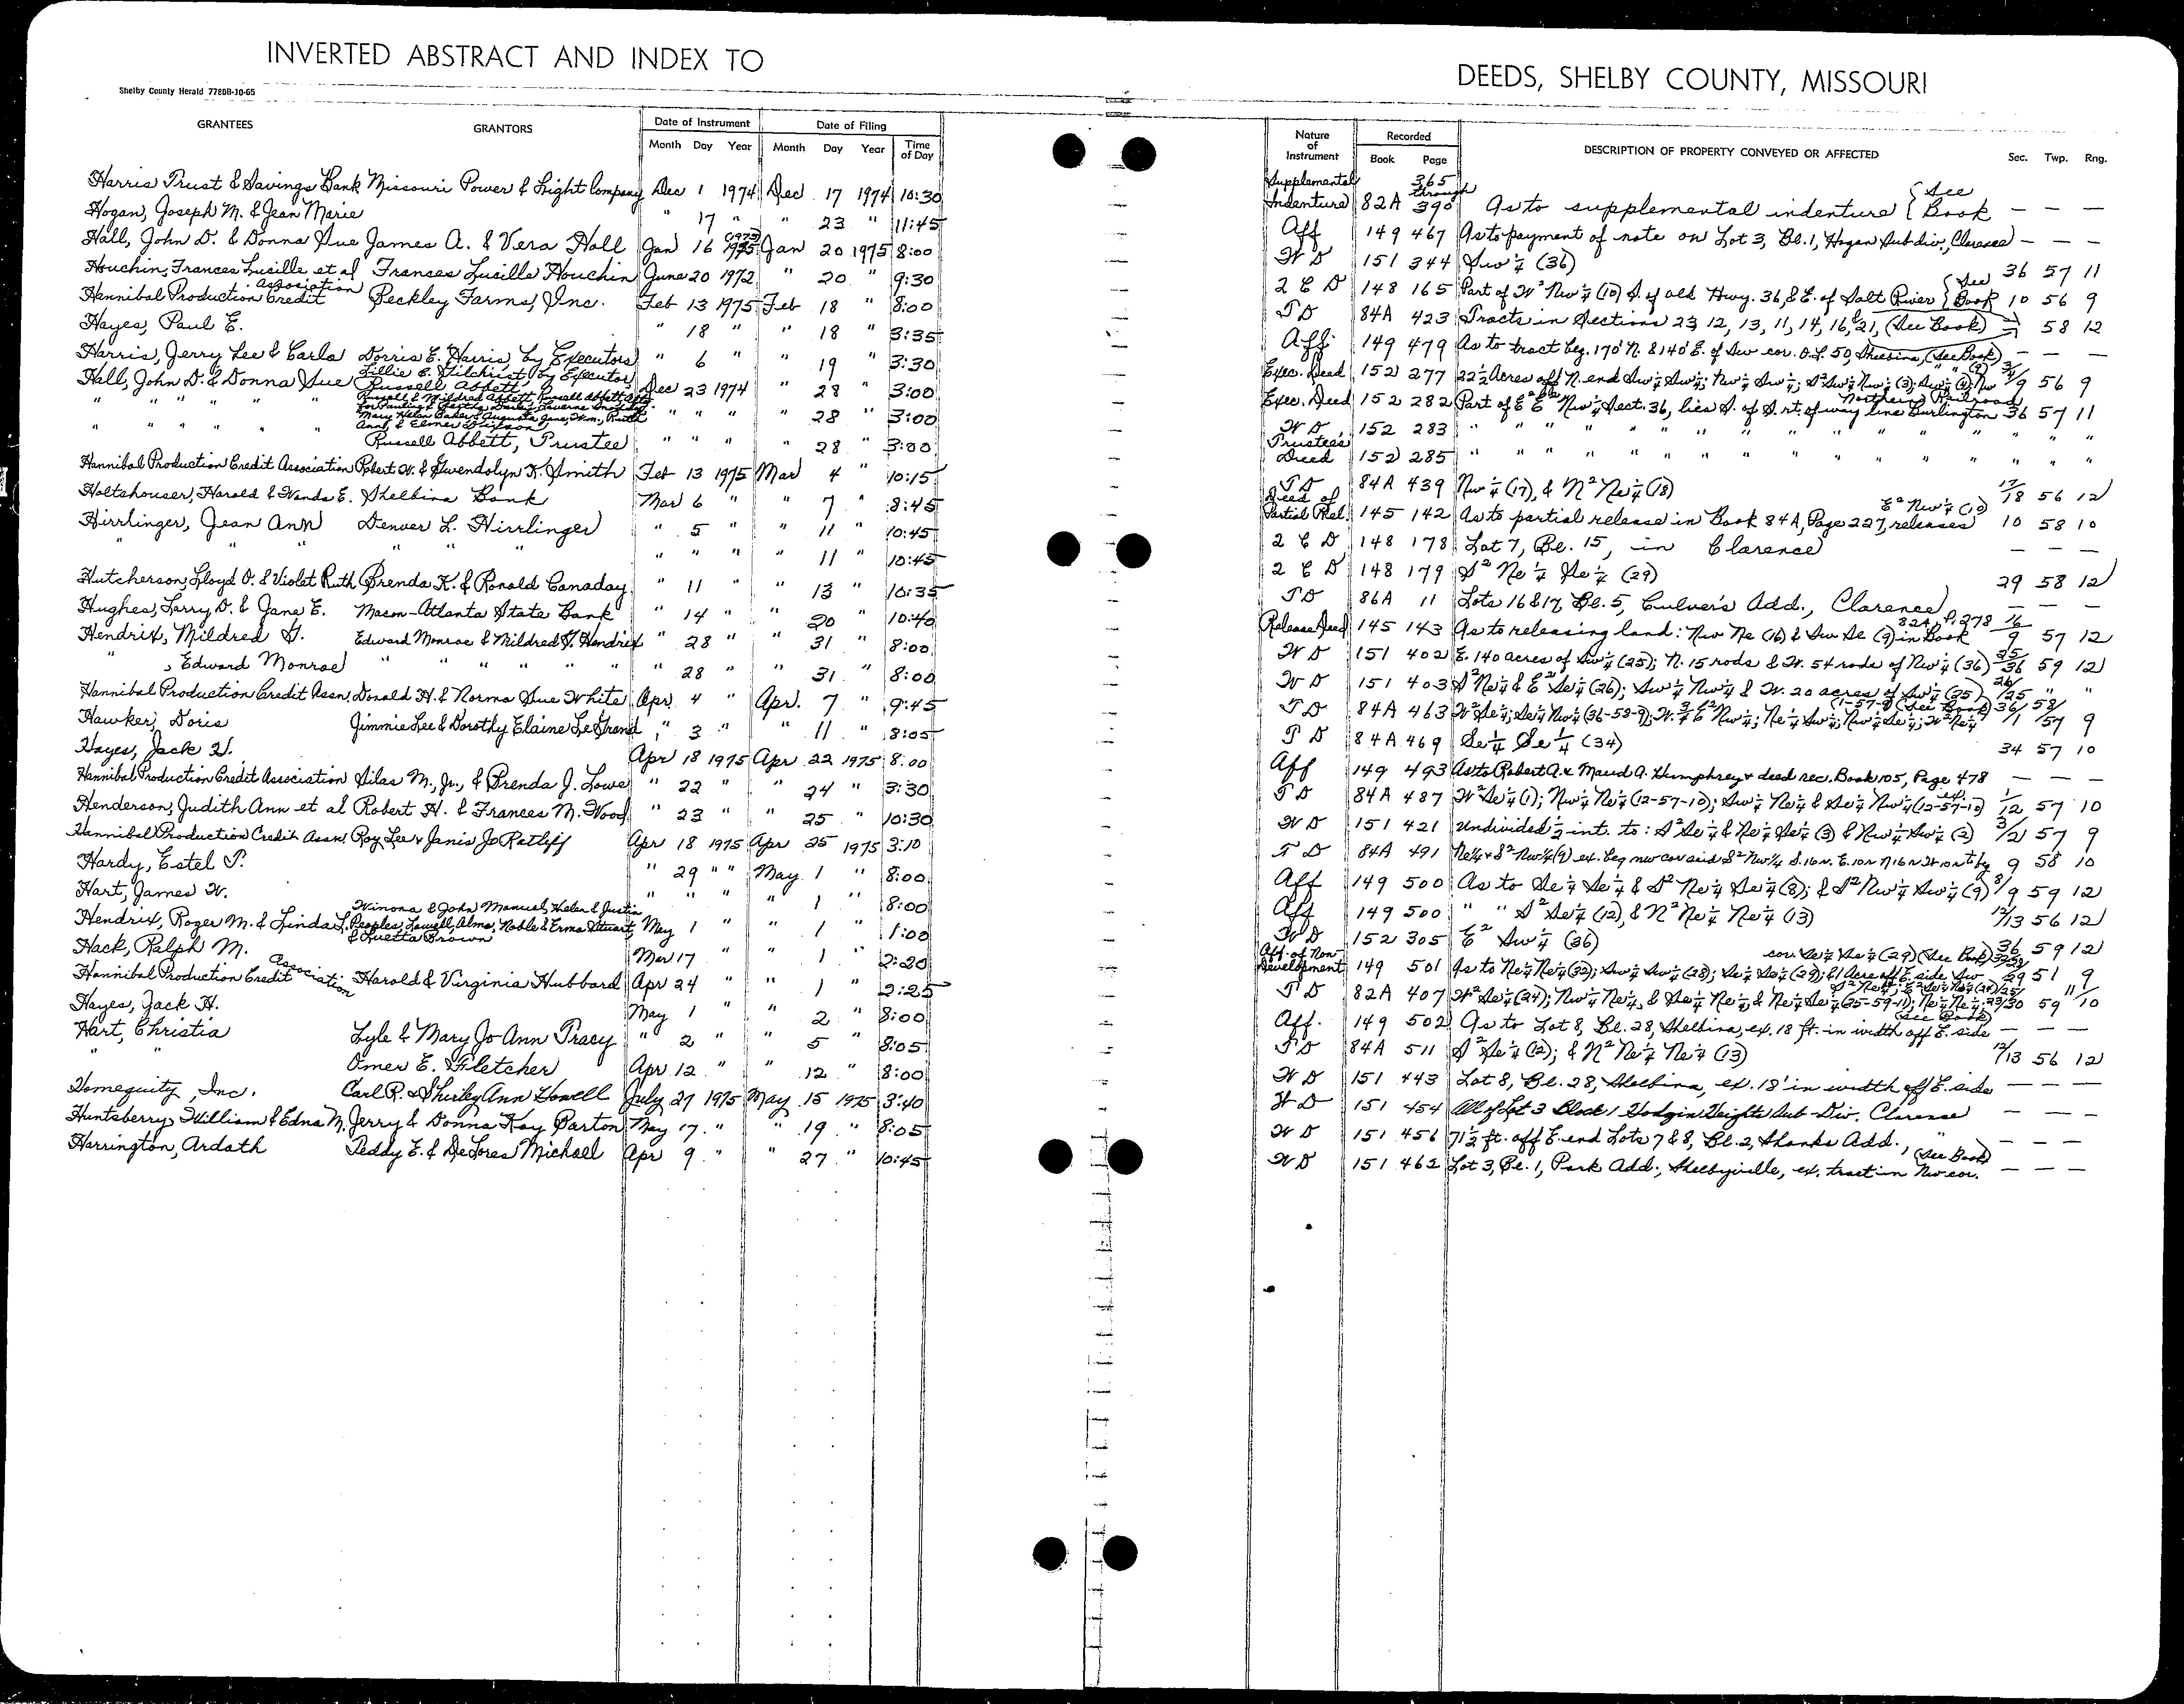 INVERTED ABSTRACT AND INDEX TO
DEEDS, SHELBY COUNTY, MISSOURI
Shelby County Herald 7780B-10-65
GRANTEES GRANTORS Date of Instrument Date of Filing
Month Day Year Month Day Year Time of Day
Nature of Instrument Recorded Book Page DESCRIPTION OF PROPERTY CONVEYED OR AFFECTED Sec. Twp. Rng.
Harris Trust & Savings Bank Missouri Power & Light Company Dec 1 1974 Dec 17 1974 10:30
Hogan, Joseph M. & Jean Marie " 17 " " 23 " 11:45
Hall, John D. & Donna Sue James A. & Vera Hall Jan 16 1975 Jan 20 1975 8:00
Houchin, Frances Lucille et al Frances Lucille Houchin June 20 1972 " 20 9:30
Hannibal Production Credit Association Peckley Farms, Inc. Feb 13 1975 Feb 18 " 8:00
Hayes, Paul E. " 18 " " 18 " 3:35
Harris, Jerry Lee & Carla Dorris E. Harris, by Executors " 6 " " 19 " 3:30
Hall, John D. & Donna Sue Lillie E. Gilchrist, by Executor, Russell Abbett Dec 23 1974 " 28 " 3:00
" " " " " Russell & Mildred Abbett, Russell Abbett,
Mary Helen Baker & Augusta Jane, Wm., Ruth " " " " 28 " 3:00
Ann, & Elmer
" " " " " Russell Abbett, Trustee " " " " 28 " 3:00
Hannibal Production Credit Association Robert W. & Gwendolyn K. Smith Feb 13 1975 Mar 4 " 10:15
Holtzhouser, Harold & Wanda E. Shelbina Bank Mar 6 " " 7 " 8:45
Hirrlinger, Jean Ann Denver L. Hirrlinger " 5 " " 11 " 10:45
" " " " " " " " " " 11 " 10:45
Hutcherson, Lloyd O. & Violet Ruth Brenda K. & Ronald Canaday " 11 " " 13 " 10:35
Hughes, Larry D. & Jane E. Macon-Atlanta State Bank " 14 " " 20 " 10:40
Hendrix, Mildred G. Edward Monroe & Mildred G. Hendrix " 28 " " 31 " 8:00
" , Edward Monroe " " " " " " 28 " " 31 " 8:00
Hannibal Production Credit Assn. Donald H. & Norma Sue White Apr 4 " Apr. 7 " 9:45
Hawker, Doris Jimmie Lee & Dorothy Elaine LeGrand " 3 " " 11 " 8:05
Hayes, Jack H. Apr 18 1975 Apr 22 1975 8:00
Hannibal Production Credit Association Silas M., Jr., & Brenda J. Lowe " 22 " " 24 " 3:30
Henderson, Judith Ann et al Robert H. & Frances M. Wood " 23 " " 25 " 10:30
Hannibal Production Credit Assn. Roy Lee & Janis Jo Ratliff Apr 18 1975 Apr 25 1975 3:10
Hardy, Estel P. " 29 " " May 1 " 8:00
Hart, James W. " " " " 1 " 8:00
Hendrix, Roger M. & Linda L. Winona & John Manuel, Helen & Justin
Peoples, Lowell, Alma, Noble & Erma Stuart, May 1 " " 1 " 1:00
& Luetta Brown
Hack, Ralph M. Mar 17 " 1 " 2:20
Hannibal Production Credit Association Harold & Virginia Hubbard Apr 24 " " 1 " 2:25
Hayes, Jack H. May 1 " " 2 " 8:00
Hart, Christia Lyle & Mary Jo Ann Tracy " 2 " " 5 " 8:05
" " Omer E. Fletcher Apr 12 " " 12 " 8:00
Homequity, Inc. Carl R. & Shirley Ann Howell July 27 1975 May 15 1975 3:40
Huntsberry, William & Edna M. Jerry & Donna Kay Barton May 17 " " 19 " 8:05
Harrington, Ardath Teddy E. & DeLores Michael Apr 9 " " 27 " 10:45
Supplemental Indenture 82A 365 through 390 As to supplemental indenture { See Book — — —
Aff 149 467 As to payment of note on Lot 3, Bl. 1, Hogan Subdiv., Clarence — — —
W D 151 344 Sw ¼ (36) 36 57 11
2 C D 148 165 Part of W² Nw ¼ (10) S. of old Hwy. 36, & E. of Salt River { See Book 10 56 9
T D 84A 423 Tracts in Sections 23, 12, 13, 11, 14, 16, & 21, (See Book) 58 12
Aff. 149 479 As to tract beg. 170' N. & 140' E. of Sw cor. O.L. 50, Shelbina, (See Book) — — —
Exec. Deed 152 277 22½ Acres off N. end Sw ¼ Sw ¼; Nw ¼ Sw ¼; S² Sw ¼ Nw ¼ (3); 56 9
Exec. Deed 152 282 Part of E² Nw ¼ Sect. 36, lies S. of S. rt. of way line Burlington Northern Railroad 36 57 11
W D 152 283 " " " " " " " " " " " "
Trustee's Deed 152 285 " " " " " " " " " " " "
T D 84A 439 Nw ¼ (17), & N² Ne ¼ (18) 17/18 56 12
Deed of Partial Rel. 145 142 As to partial release in Book 84A, Page 227, releases E² Nw ¼ (10) 10 58 10
2 C D 148 178 Lot 7, Bl. 15, in Clarence — — —
2 C D 148 179 S² Ne ¼ Se ¼ (29) 29 58 12
T D 86A 11 Lots 16 & 17, Bl. 5, Culver's Add., Clarence — — —
Release Deed 145 143 As to releasing land: Nw Ne (16) & Sw Se (9) in Book 82A, P. 278 16/9 57 12
W D 151 402 E. 140 acres of Sw ¼ (25); N. 15 rods & W. 54 rods of Nw ¼ (36) 25/36 59 12
W D 151 403 S² Ne ¼ & E² Se ¼ (26); Sw ¼ Nw ¼ & W. 20 acres of Sw ¼ (25) 26/25 " "
T D 84A 463 W² Se ¼; Se ¼ Nw ¼ (36-58-9); W. ¾ E² Nw ¼; Ne ¼ Sw ¼; Nw ¼ Se ¼; W² Ne ¼ (1-57-9) (See Book) 36/1 58/57 9
T D 84A 469 Se ¼ Se ¼ (34) 34 57 10
Aff 149 493 As to Robert A. & Maud A. Humphrey & deed rec. Book 105, Page 478 — — —
T D 84A 487 W² Se ¼ (1); Nw ¼ Ne ¼ (12-57-10); Sw ¼ Ne ¼ & Se ¼ Nw ¼ (12-57-10) ex. 1/12 57 10
W D 151 421 Undivided ½ int. to: S² Se ¼ & Ne ¼ Se ¼ (3) & Nw ¼ Sw ¼ (2) 3/2 57 9
T D 84A 491 Ne ¼ & S² Nw ¼ (9) ex. beg nw cor said S² Nw ¼ S. 16 r. E. 10 r N 16 r W 10 r to beg 9 58 10
Aff 149 500 As to Se ¼ Se ¼ & S² Ne ¼ Se ¼ (8); & S² Nw ¼ Sw ¼ (9) 8/9 59 12
Aff 149 500 " " S² Se ¼ (12), & N² Ne ¼ Ne ¼ (13) 12/13 56 12
W D 152 305 E² Sw ¼ (36) 36 59 12
Aff. of Non Development 149 501 As to Ne ¼ Ne ¼ (32); Sw ¼ Sw ¼ (28); Se ¼ Se ¼ (29); & 1 Acre off E. side Sw cor. Se ¼ Se ¼ (29) (See Book) 51 9
T D 82A 407 W² Se ¼ (24); Nw ¼ Ne ¼, & Se ¼ Ne ¼, & Ne ¼ Se ¼ (25-59-11); 59 11/10
Aff. 149 502 As to Lot 8, Bl. 28, Shelbina, ex. 18 ft. in width off E. side — — —
T D 84A 511 S² Se ¼ (12); & N² Ne ¼ Ne ¼ (13) 12/13 56 12
W D 151 443 Lot 8, Bl. 28, Shelbina, ex. 18' in width off E. side — — —
W D 151 454 All of Lot 3 Block 1 Hodgin Heights Sub-Div. Clarence — — —
W D 151 456 71½ ft. off E. end Lots 7 & 8, Bl. 2, Shanks Add., " — — —
W D 151 462 Lot 3, Bl. 1, Park Add., Shelbyville, ex. tract in Nw cor. (See Book) — — —